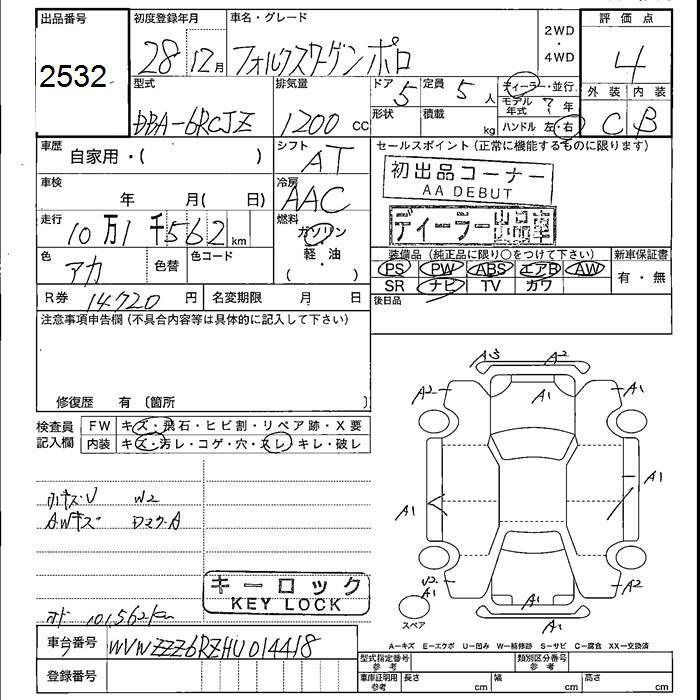 出品番号 初度登録年月 車名・グレード 2WD・4WD 評価点
2532 28 12月 フォルクスワーゲンポロ 4
型式 排気量 ドア 5 定員 5人 ディーラー・並行 外装 内装
DBA-6RCJZ 1200cc 形状 積載 kg モデル年式 ?年 C B
ハンドル 左・右
車歴 自家用・( ) シフト AT セールスポイント(正常に機能するものに限ります)
車検 年 月( 日) 冷房 AAC 初出品コーナー
AA DEBUT
走行 10万1千562km 燃料 ガソリン・軽・油( ) ディーラー出品車
色 アカ 色替 色コード 装備品(純正品に限り○をつけて下さい) 新車保証書
PS PW ABS エアB AW 有・無
SR ナビ TV カワ
R券 14,720円 名変期限 月 日 後日品
注意事項申告欄(不具合内容等は具体的に記入して下さい)
修復歴 有〔箇所 〕
検査員記入欄 FW キズ・飛石・ヒビ割・リペア跡・X要
内装 キズ・汚レ・コゲ・穴・スレ・キレ・破レ
A3 A2
A2 A1
A1
A1 A1
A1
小キズ・V W2
AWキズ
V2
A1 A1 A2
A1
キーロック
KEY LOCK
101,562km
スペア
A-キズ E-エクボ U-凹み W-補修跡 S-サビ C-腐食 XX-交換済
車台番号 WVWZZZ6RZHU014418
型式指定番号 参考 類別区分番号 参考
登録番号 車庫証明用 参考 長さ cm 幅 cm 高さ cm